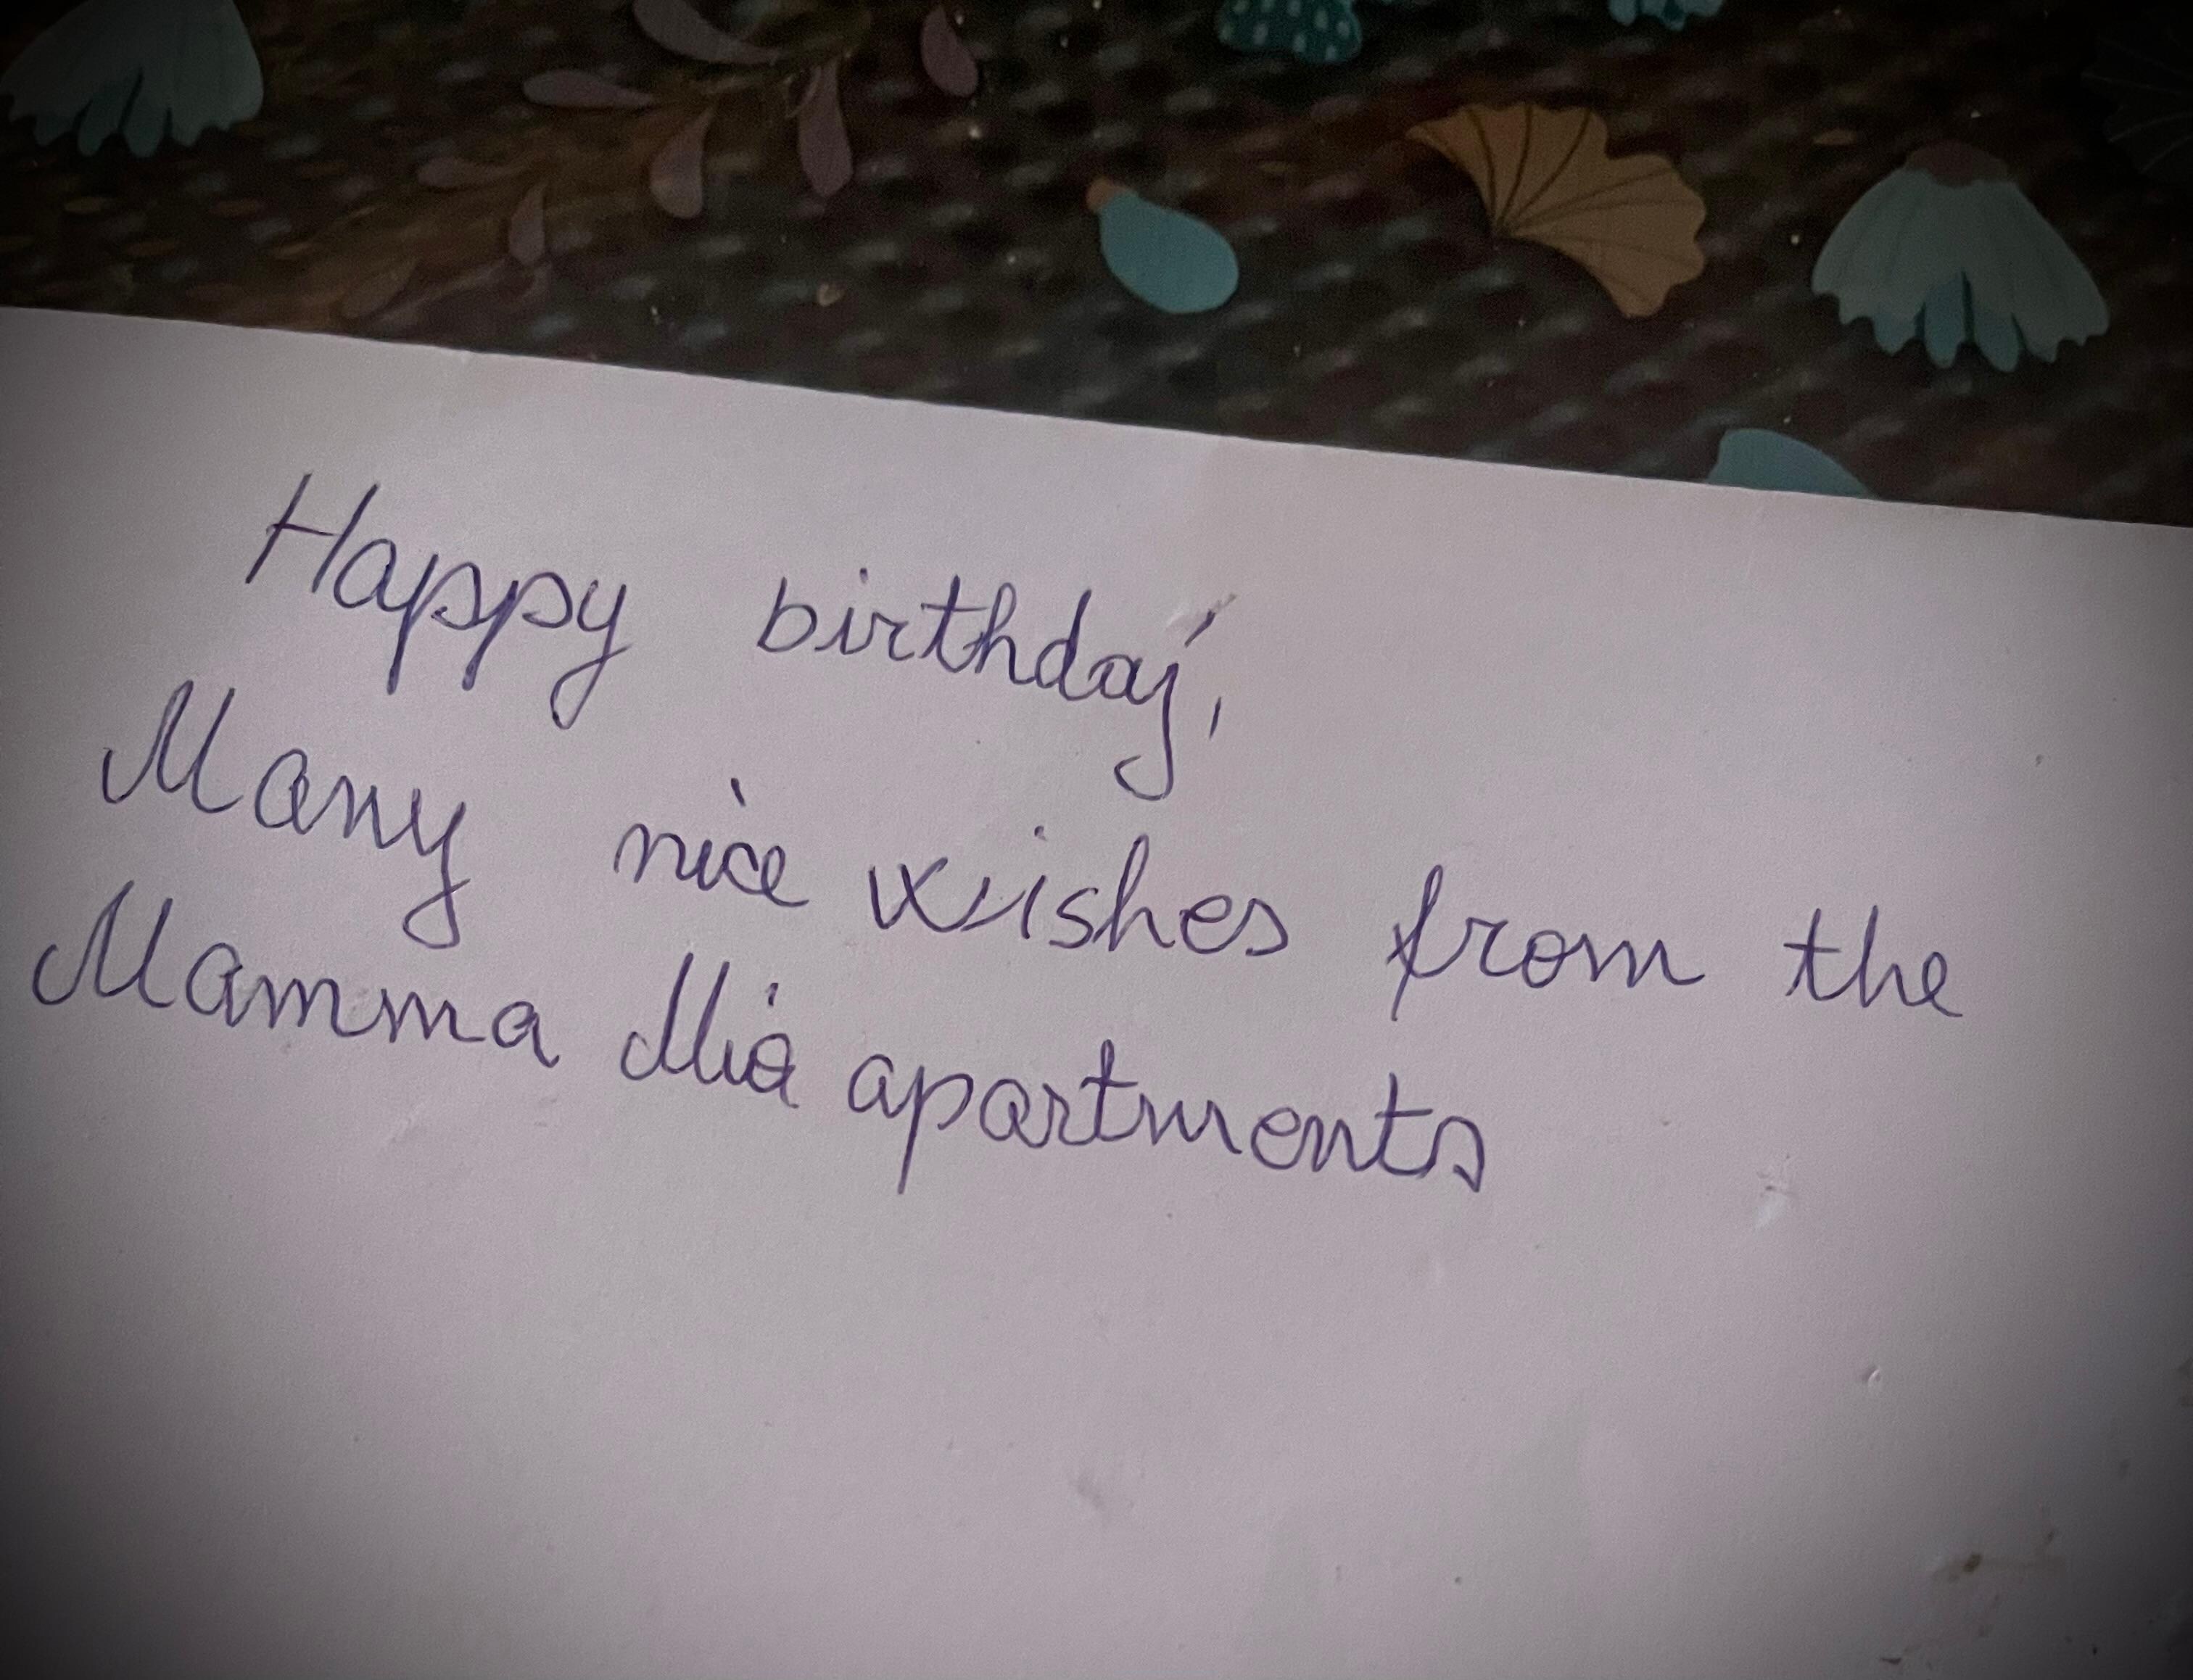 Happy birthday,
Many nice wishes from the
Mamma Mia apartments